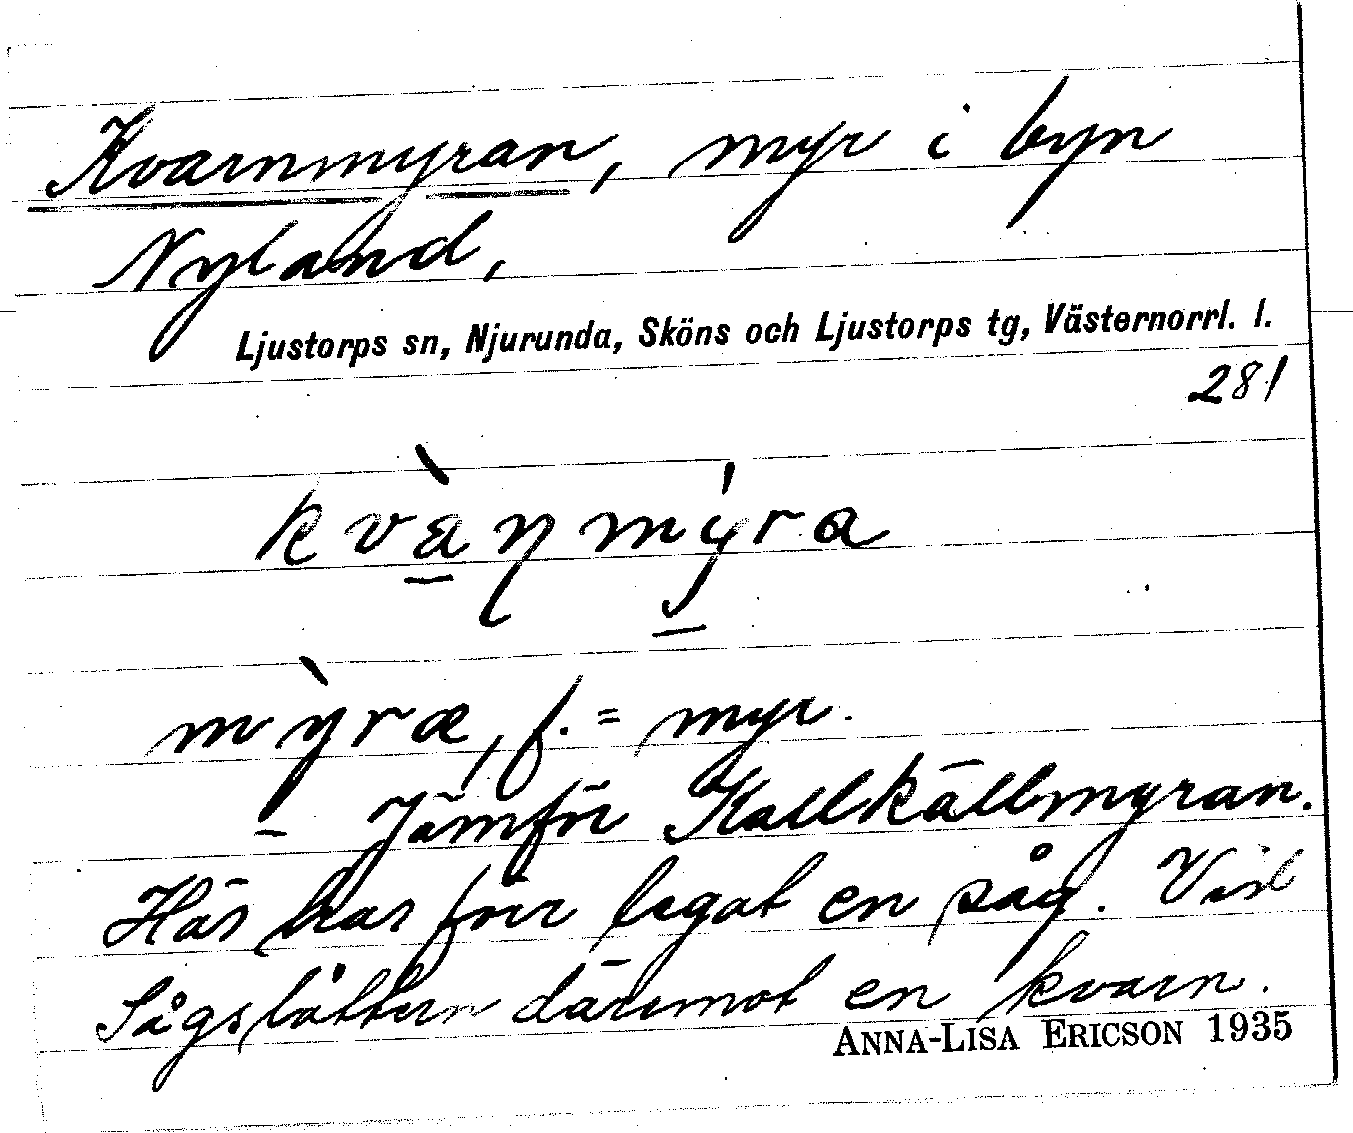 Kvarnmyran, myr i byn
Nyland,
Ljustorps sn, Njurunda, Sköns och Ljustorps tg, Västernorrl. l.
281
kvàṇmýra
mỳræ, f. = myr.
Jämför Kallkällmyran.
Här har förr legat en såg. Vid
Sågslåttern däremot en kvarn.
ANNA-LISA ERICSON 1935